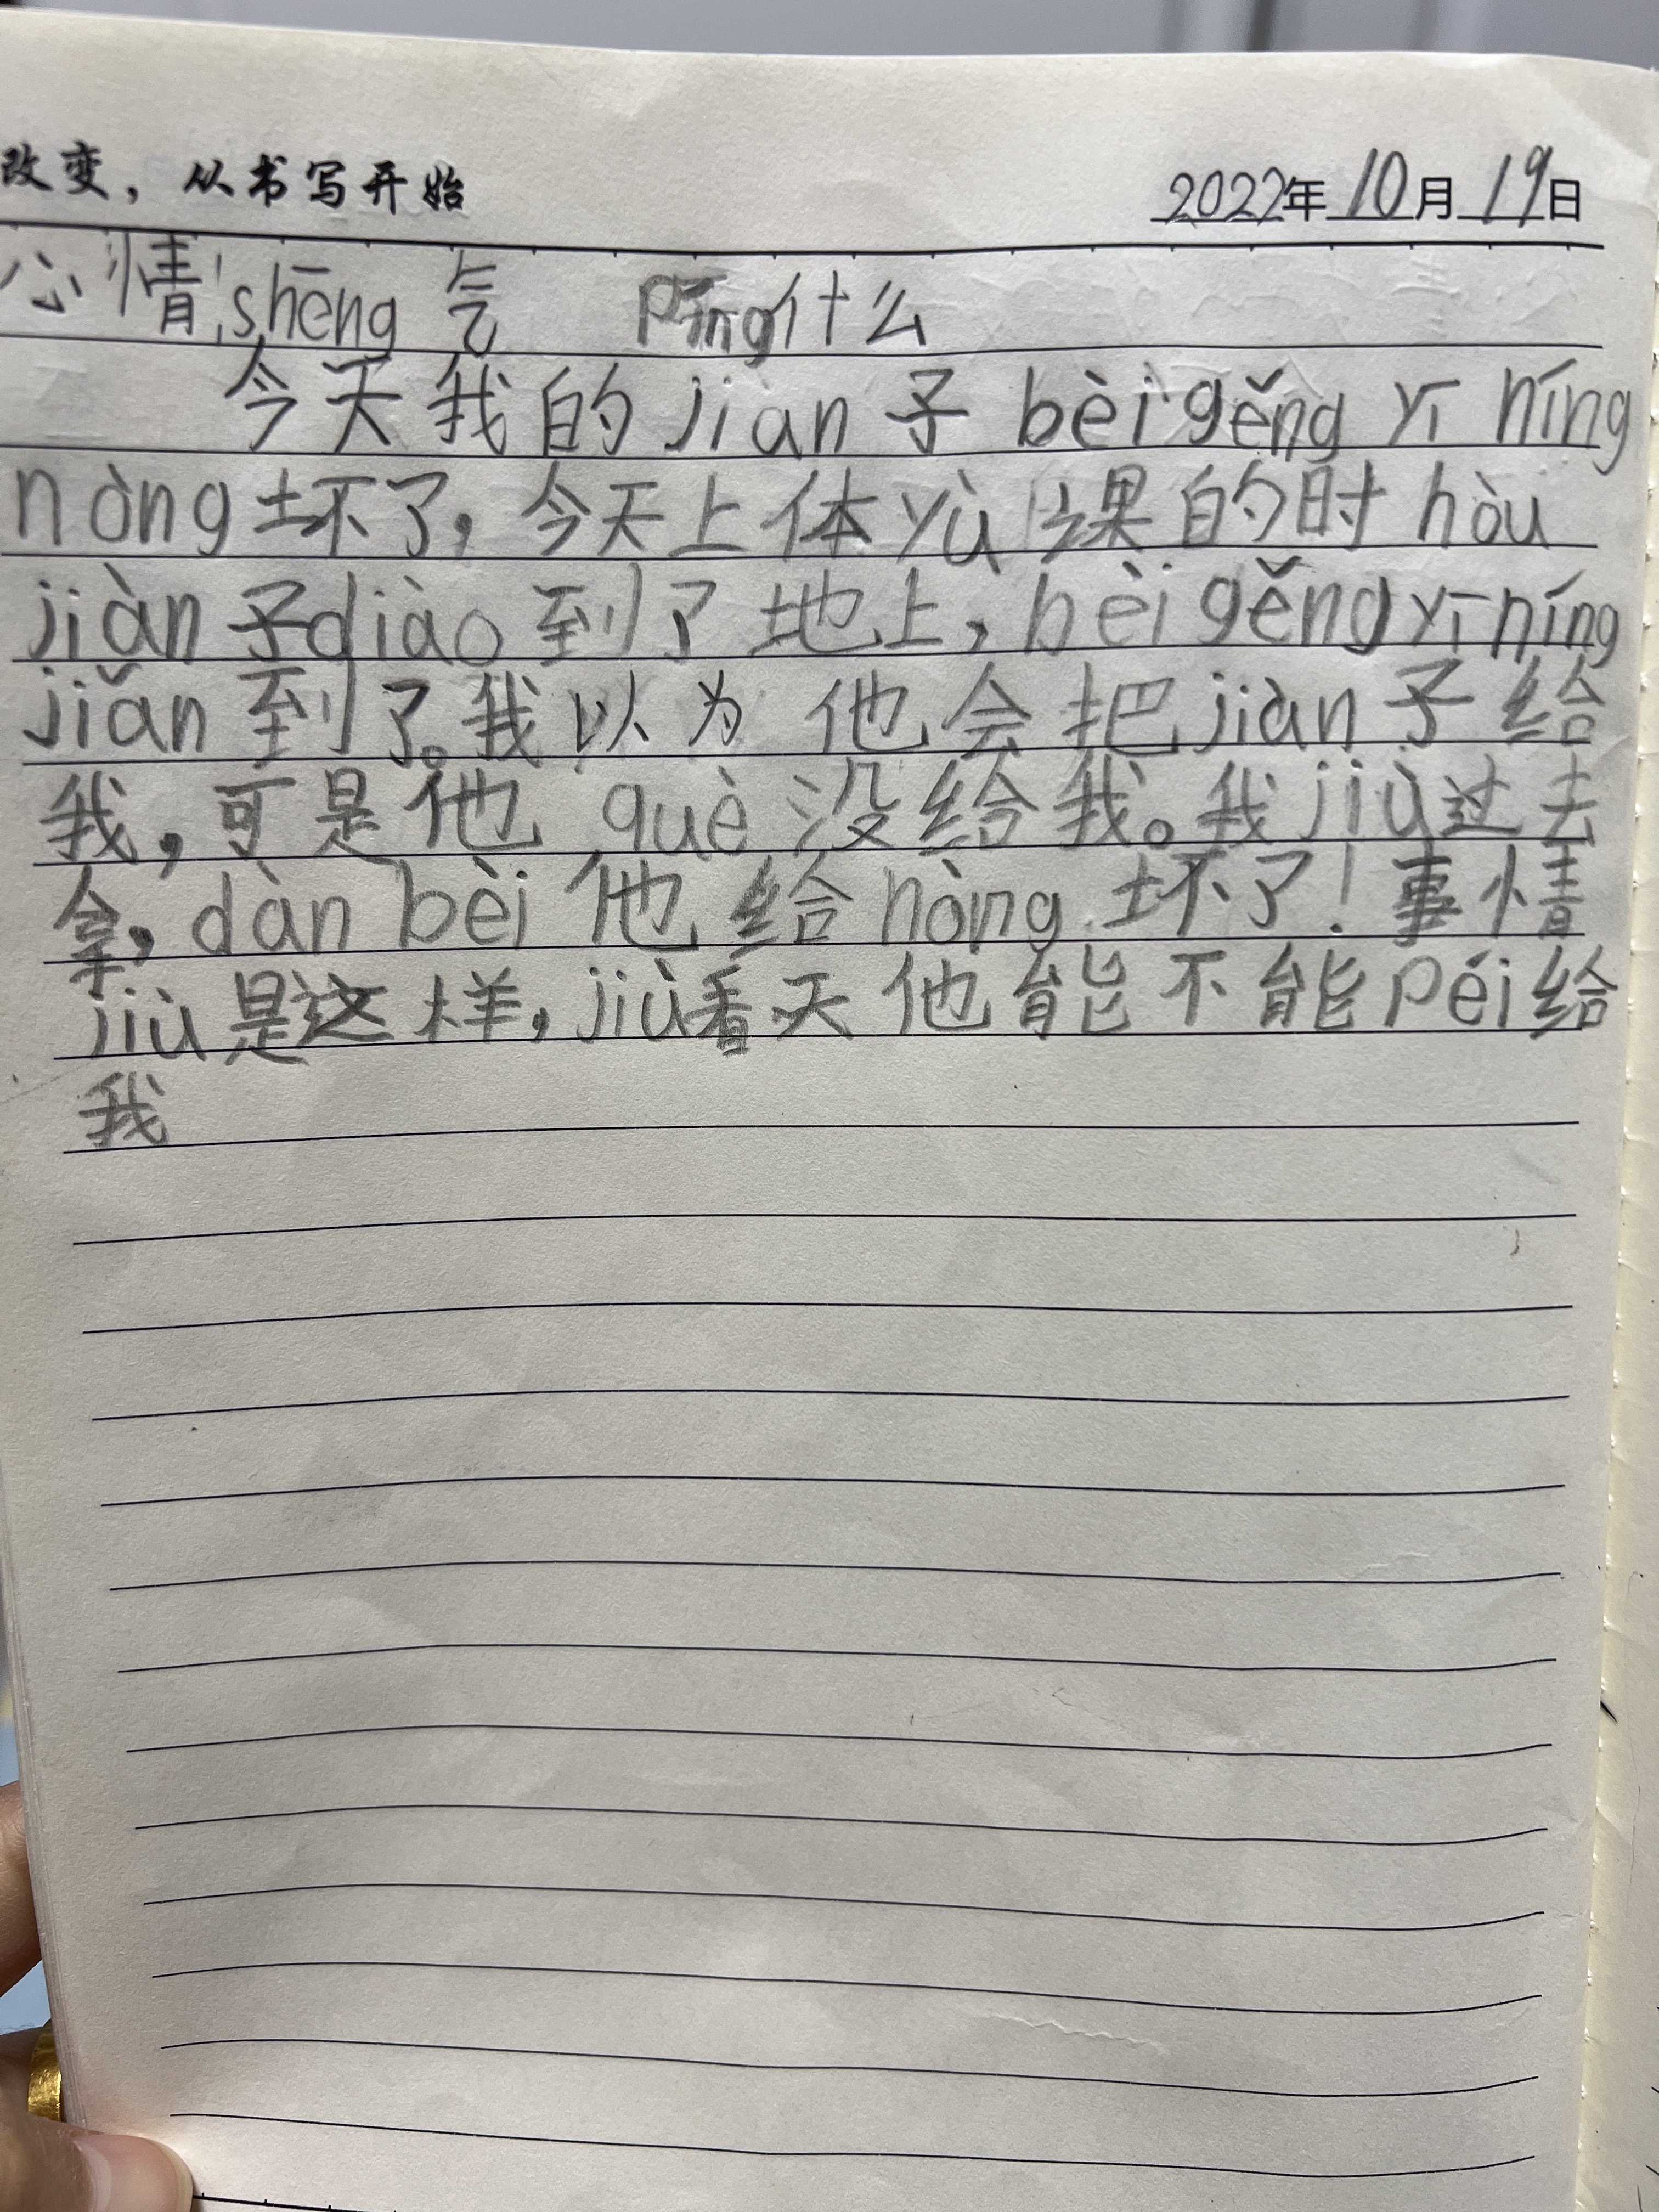 改变，从书写开始 2022年10月19日
心情:shēng气 Píng什么
今天我的jiàn子bèi gěng yī níng
nòng坏了，今天上体yù课的时hòu
jiàn子diào到了地上，bèi gěng yī níng
jiǎn到了。我以为他会把jiàn子给
我，可是他què没给我。我jiù过去
拿，dàn bèi他给nòng坏了！事情
jiù是这样，jiù看天他能不能péi给
我